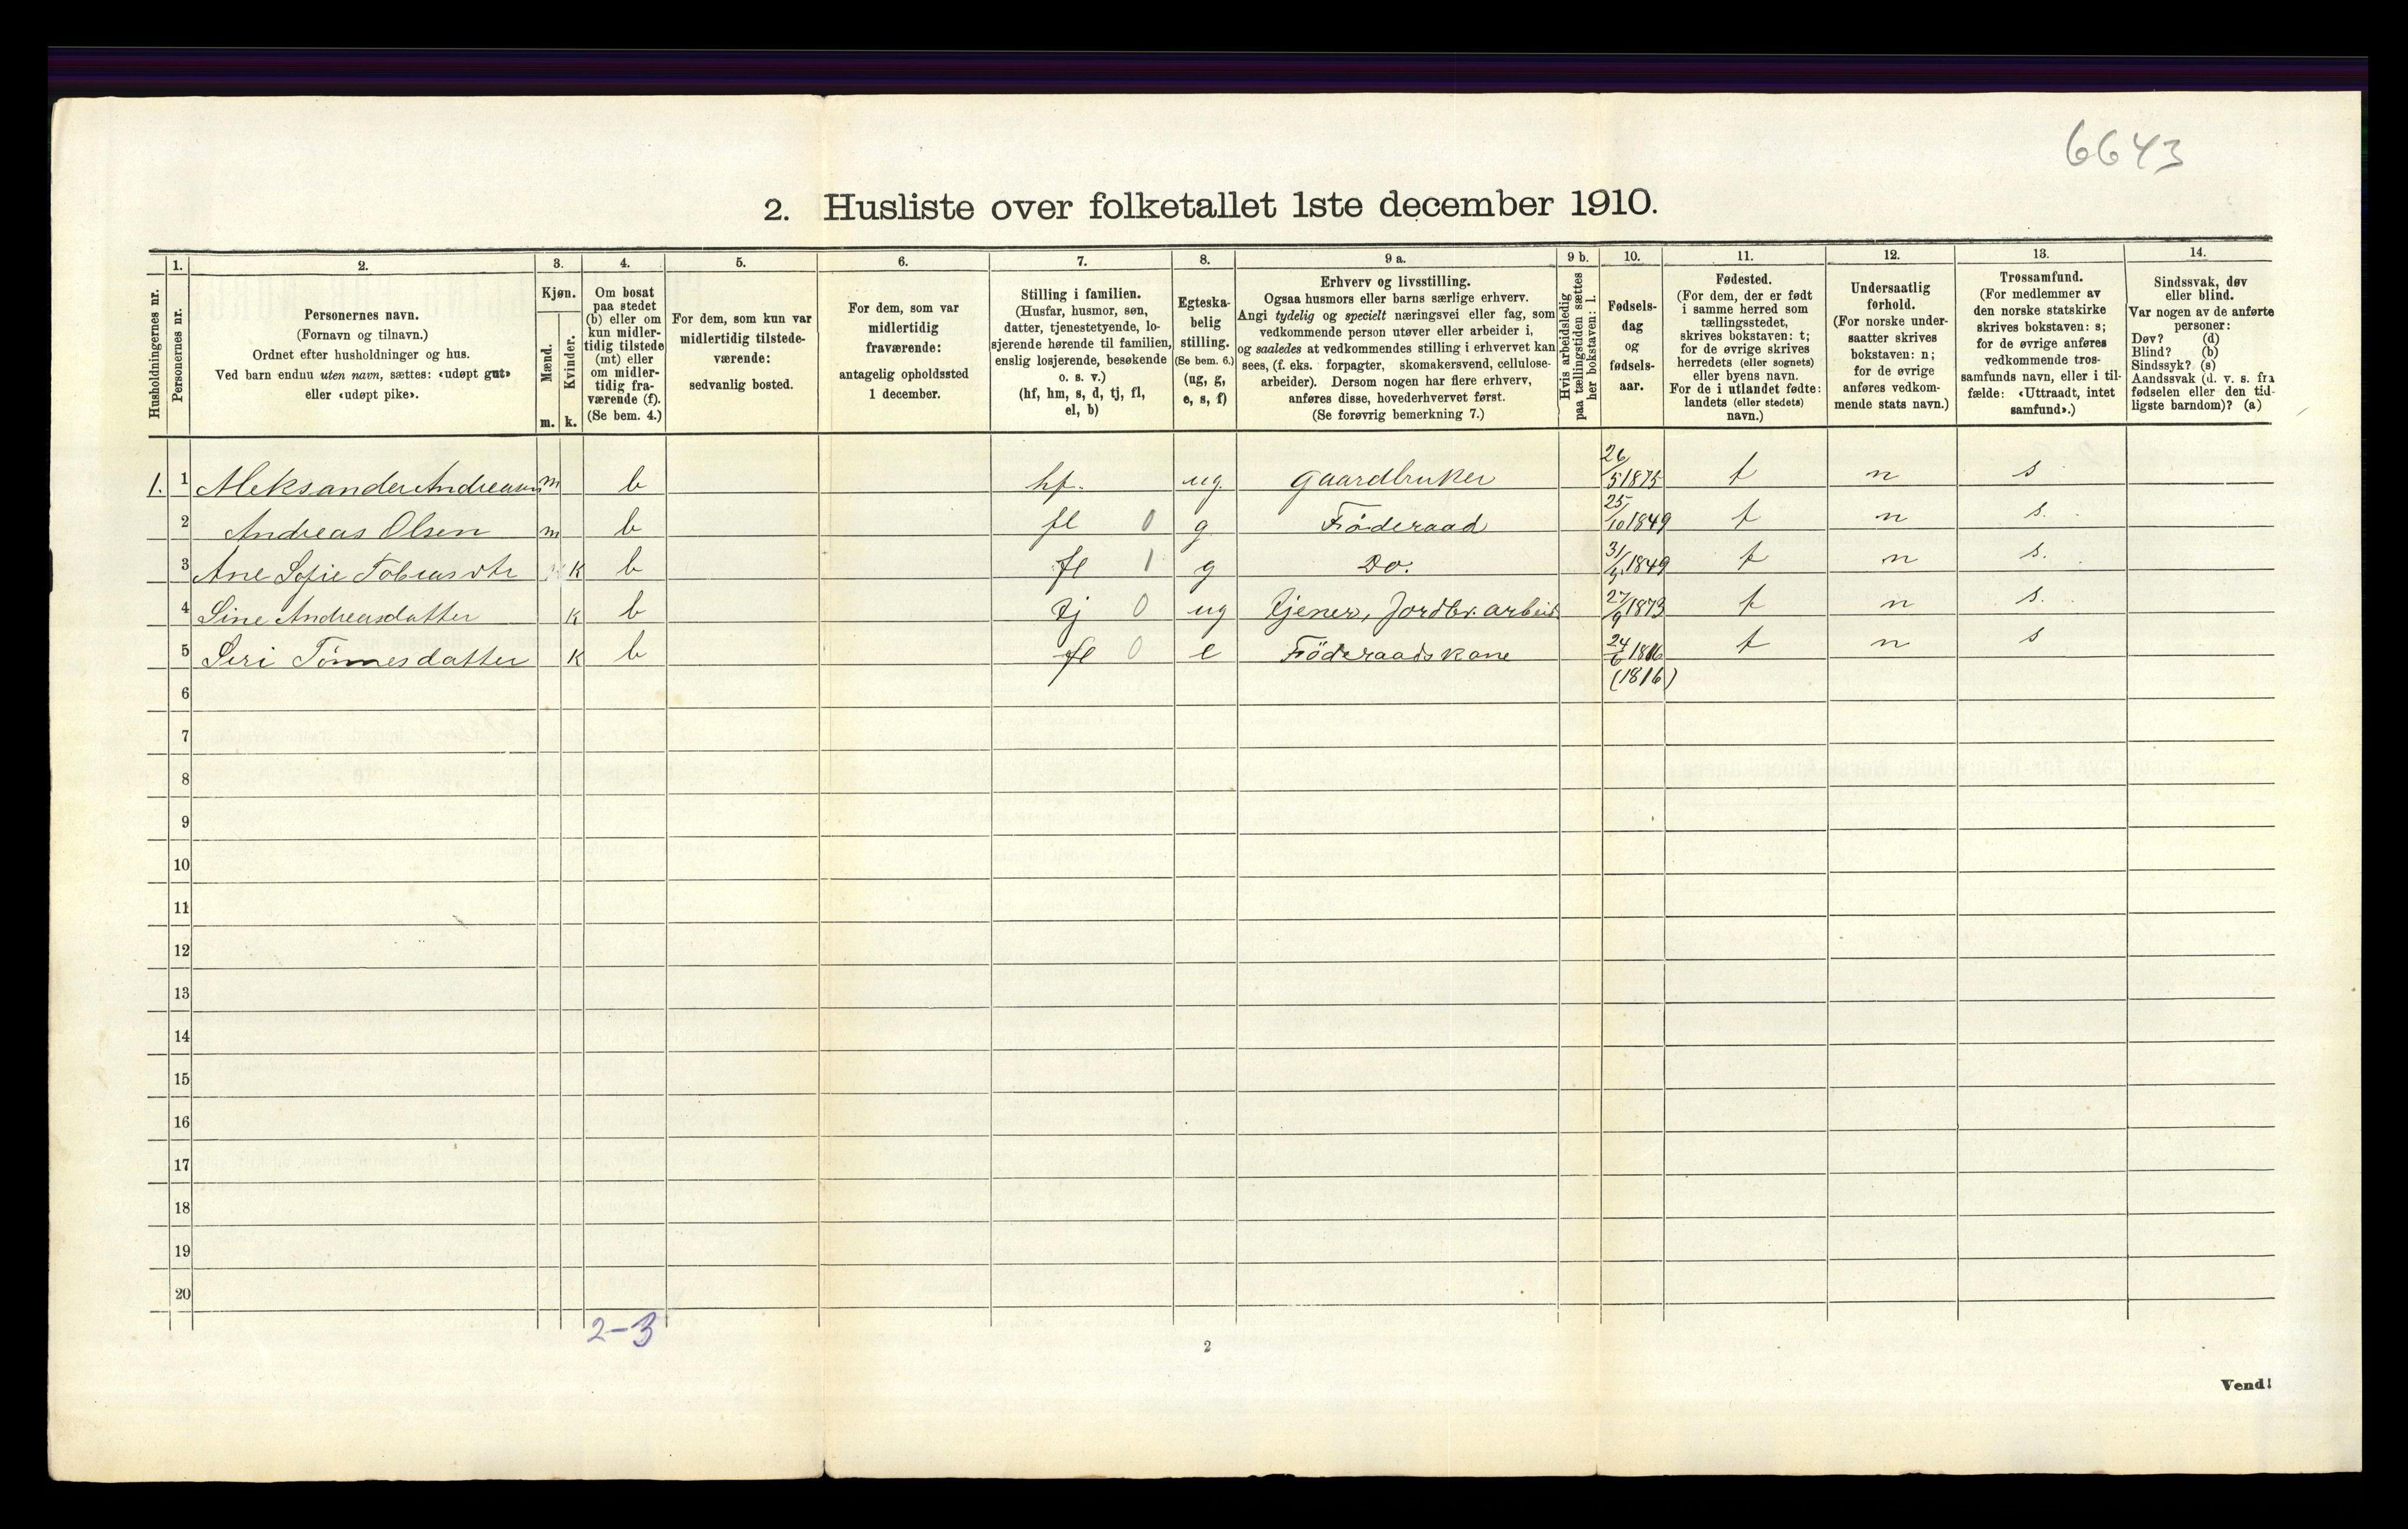 6643
2. Husliste over folketallet 1ste december 1910.
Husholdningernes nr.
1.
Personernes nr.
2.
Personernes navn.
(Fornavn og tilnavn.)
Ordnet efter husholdninger og hus.
Ved barn endnu uten navn, sættes: «udøpt gut»
eller «udøpt pike».
3.
Kjøn.
Mænd.
Kvinder.
m. k.
4.
Om bosat
paa stedet
(b) eller om
kun midler-
tidig tilstede
(mt) eller
om midler-
tidig fra-
værende (f).
(Se bem. 4.)
5.
For dem, som kun var
midlertidig tilstede-
værende:
sedvanlig bosted.
6.
For dem, som var
midlertidig
fraværende:
antagelig opholdssted
1 december.
7.
Stilling i familien.
(Husfar, husmor, søn,
datter, tjenestetyende, lo-
sjerende hørende til familien,
enslig losjerende, besøkende
o. s. v.)
(hf, hm, s, d, tj, fl,
el, b)
8.
Egteska-
belig
stilling.
(Se bem. 6.)
(ug, g,
e, s, f)
9 a.
Erhverv og livsstilling.
Ogsaa husmors eller barns særlige erhverv.
Angi tydelig og specielt næringsvei eller fag, som
vedkommende person utøver eller arbeider i,
og saaledes at vedkommendes stilling i erhvervet kan
sees, (f. eks. forpagter, skomakersvend, cellulose-
arbeider). Dersom nogen har flere erhverv,
anføres disse, hovederhvervet først.
(Se forøvrig bemerkning 7.)
9 b.
Hvis arbeidsledig
paa tællingstiden sættes
her bokstaven: l.
10.
Fødsels-
dag
og
fødsels-
aar.
11.
Fødested.
(For dem, der er født
i samme herred som
tællingsstedet,
skrives bokstaven: t;
for de øvrige skrives
herredets (eller sognets)
eller byens navn.
For de i utlandet fødte:
landets (eller stedets)
navn.)
12.
Undersaatlig
forhold.
(For norske under-
saatter skrives
bokstaven: n;
for de øvrige
anføres vedkom-
mende stats navn.)
13.
Trossamfund.
(For medlemmer av
den norske statskirke
skrives bokstaven: s;
for de øvrige anføres
vedkommende tros-
samfunds navn, eller i til-
fælde: «Uttraadt, intet
samfund».)
14.
Sindssvak, døv
eller blind.
Var nogen av de anførte
personer:
Døv? (d)
Blind? (b)
Sindssyk? (s)
Aandssvak (d. v. s. fra
fødselen eller den tid-
ligste barndom)? (a)
1. 1 Aleksander Andreasen m b hf. ug. gaardbruker 26/5 1875 t n s
2 Andreas Olsen m b fl 0 g Föderaad 25/10 1849 t n s.
3 Ane Sofie Tobiasdtr k b fl 1 g Do. 31/5 1849 t n s.
4 Sine Andreasdatter k b tj 0 ug tjener, Jordbr. arbeid 27/9 1873 t n s.
5 Siri Tönnesdatter k b fl 0 e Föderaadskone 24/6 1816 t n s
(1816)
6
7
8
9
10
11
12
13
14
15
16
17
18
19
20
2-3
2
Vend!